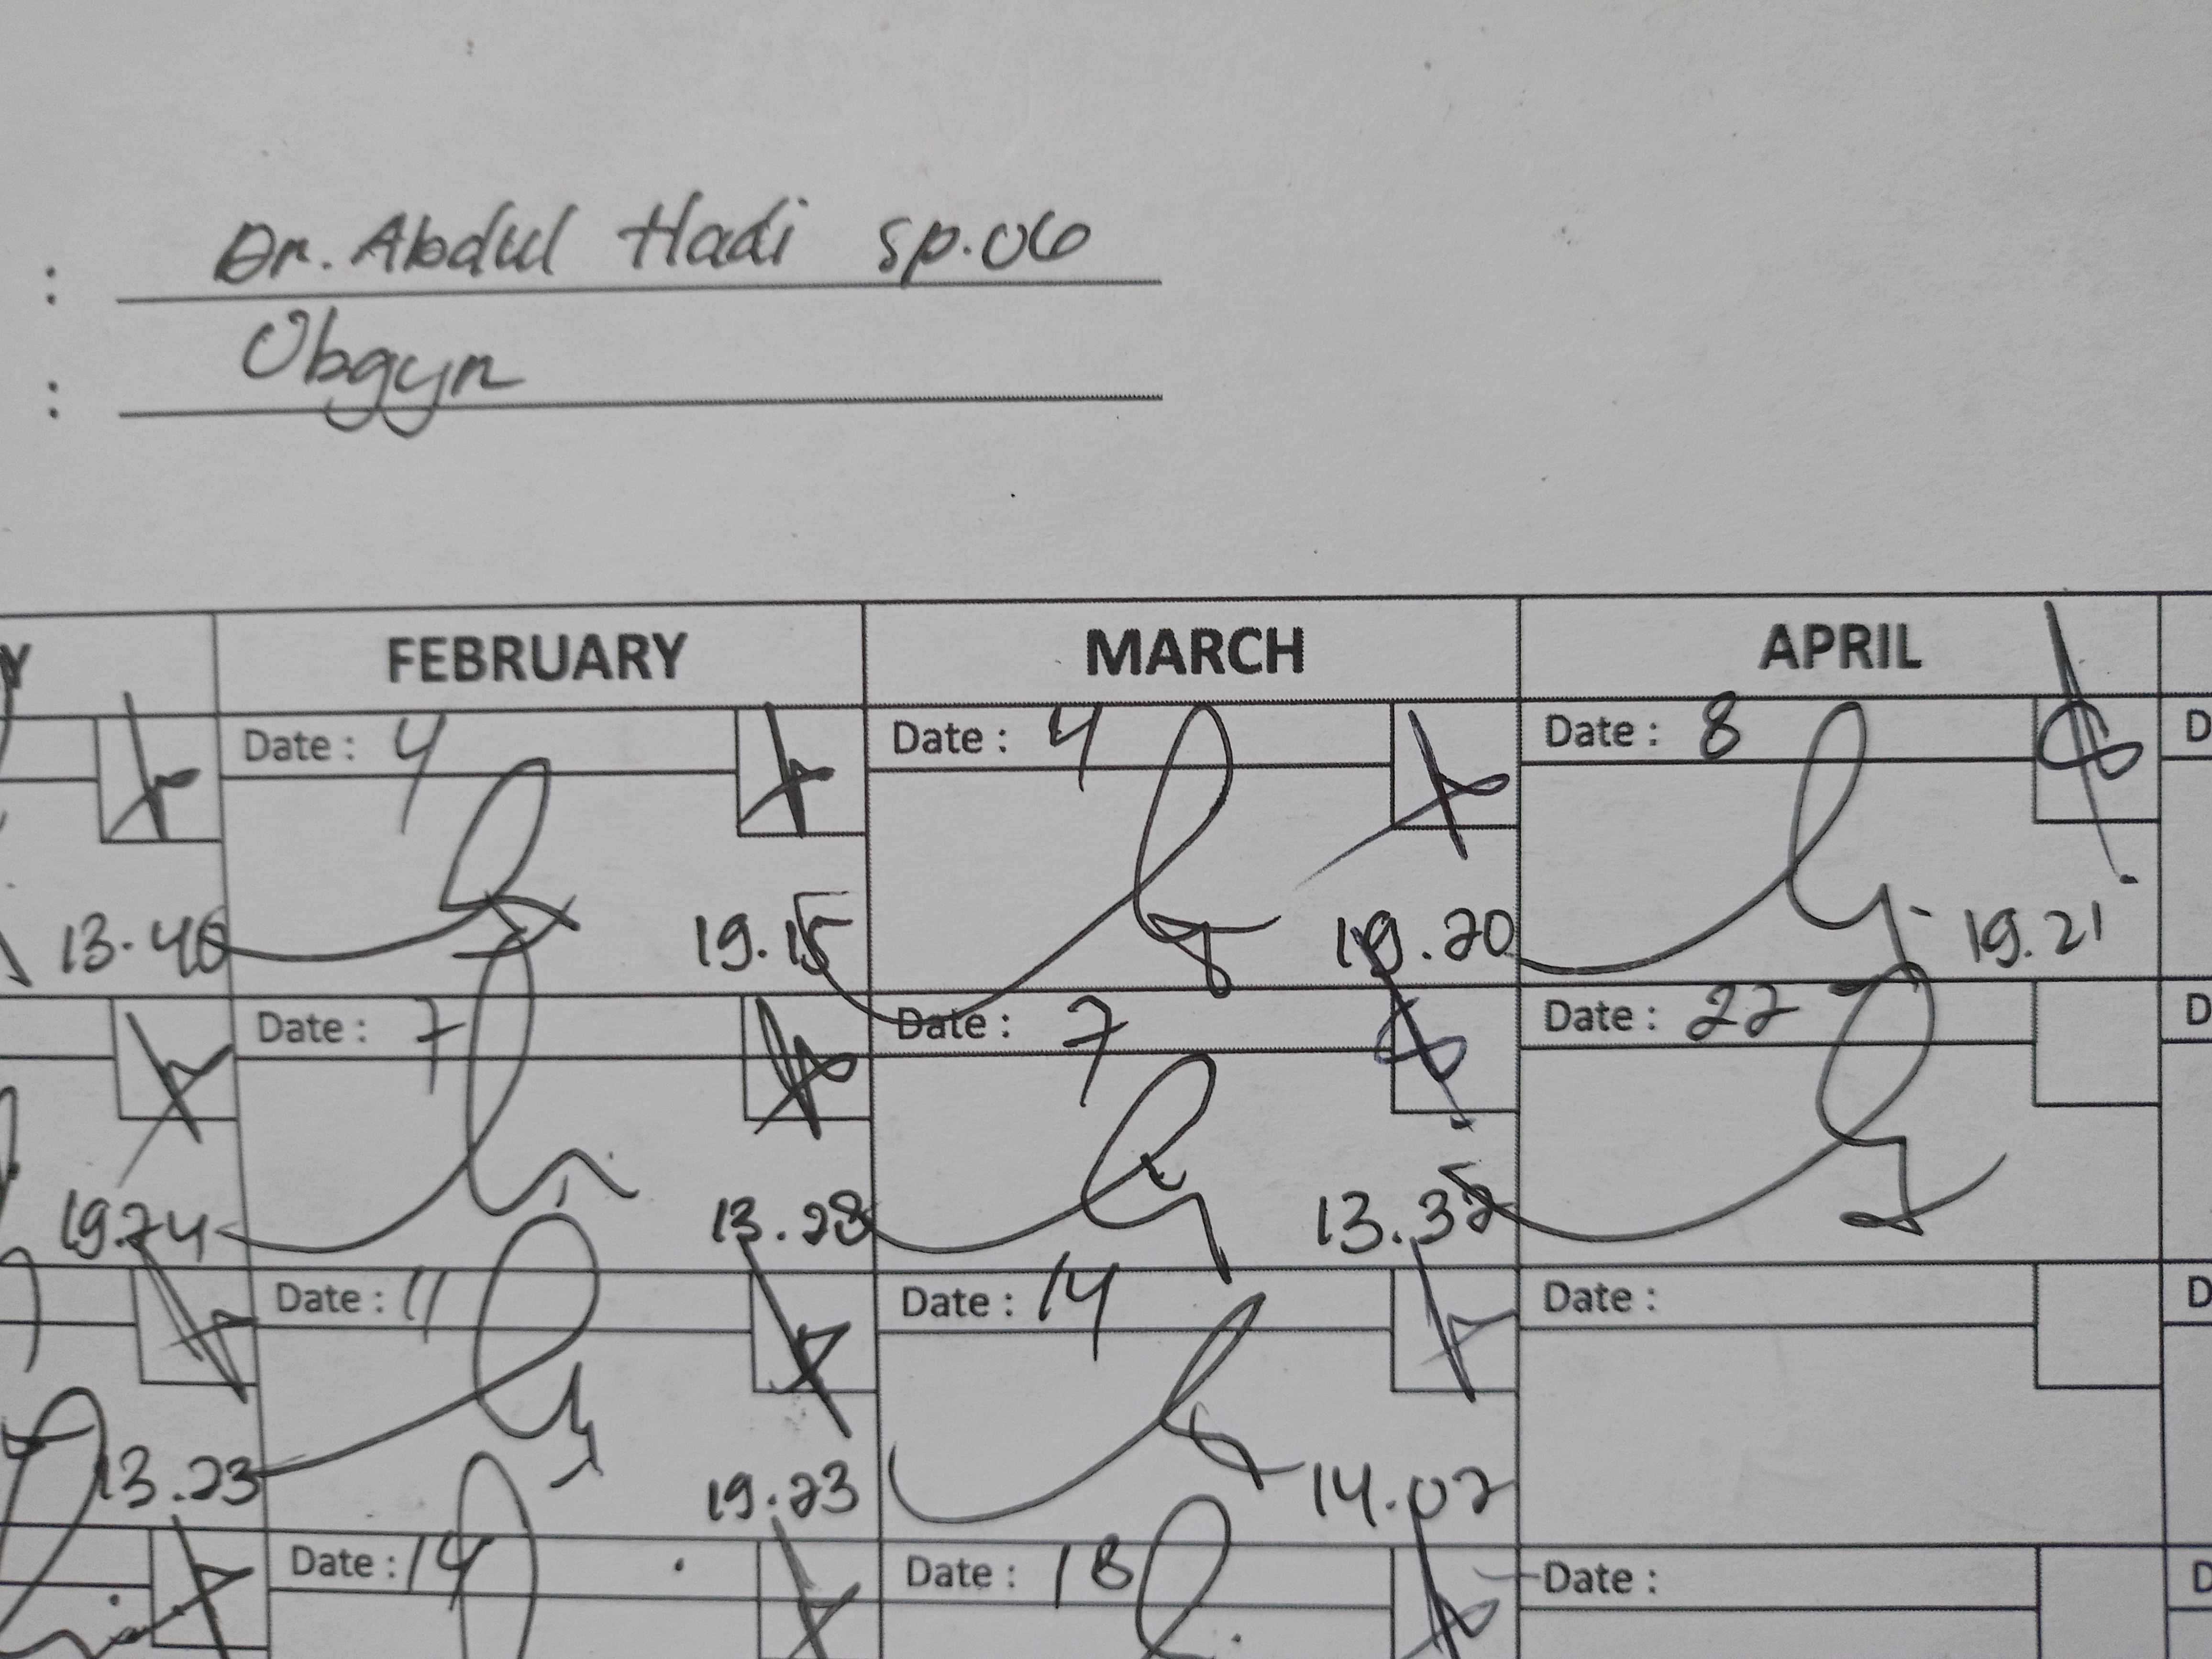 : Dr. Abdul Hadi Sp.OG
: Obgyn
Y FEBRUARY MARCH APRIL
Date : 4 Date : 4 Date : 8 D
13.46 19.15 19.20 19.21
Date : 7 Date : 7 Date : 22 D
19.24 13.28 13.32
Date : 11 Date : 14 Date : D
13.23 19.23 14.02
Date : 14 Date : 18 Date : D